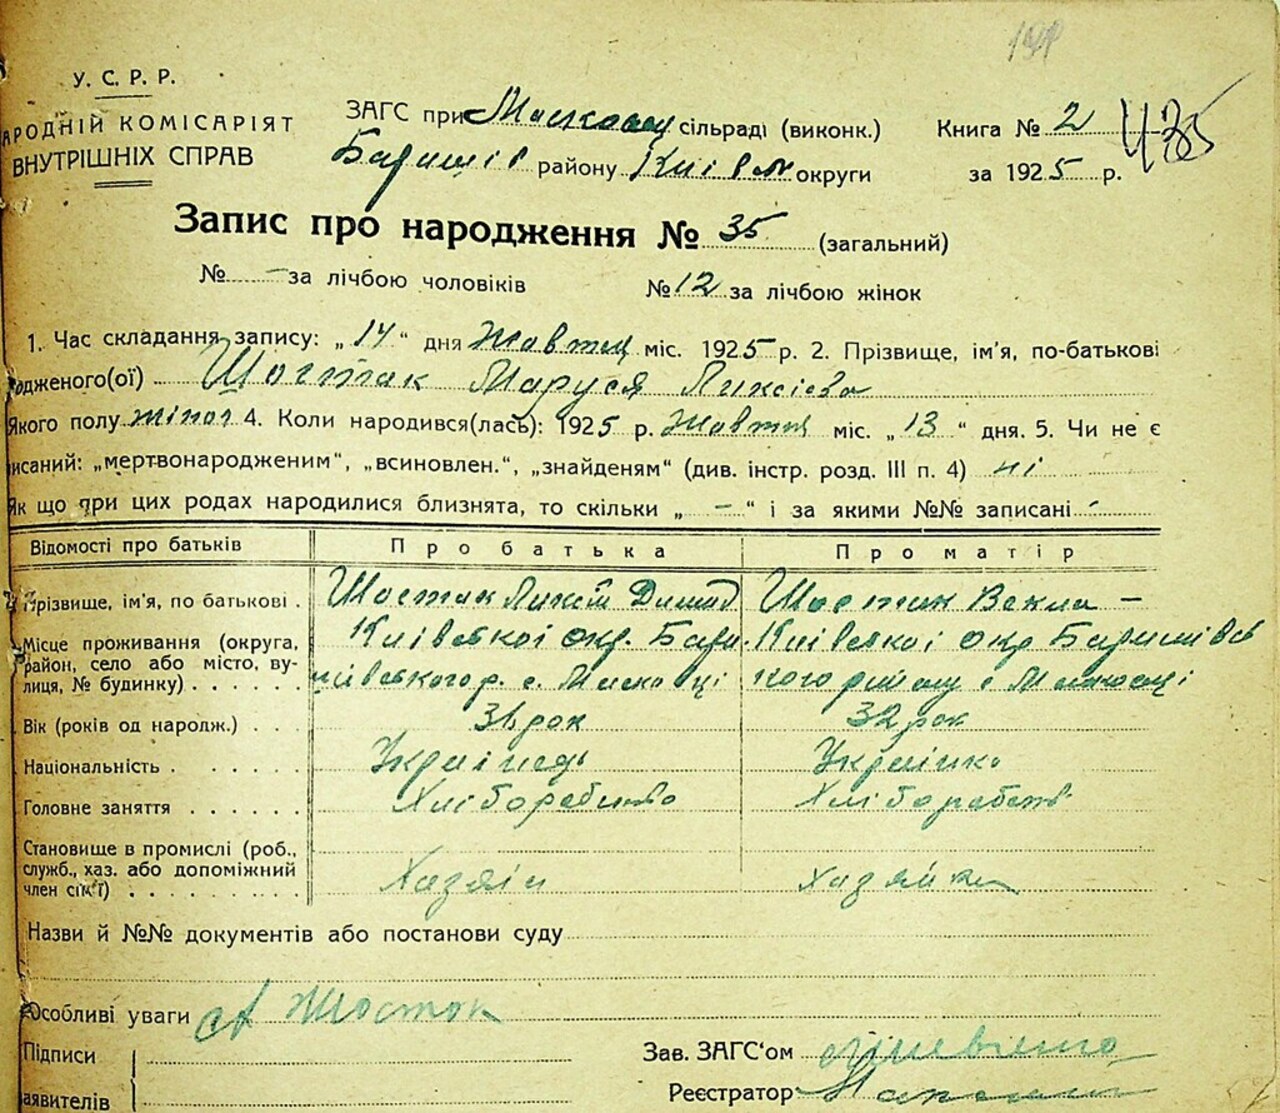 У. С. Р. Р.
АРОДНІЙ КОМІСАРІЯТ
ВНУТРІШНІХ СПРАВ
ЗАГС при сільраді (виконк.)
Баришів району Київ округи
Книга № 2
за 1925 р.
Запис про народження № 35 (загальний)
№ - за лічбою чоловіків № 12 за лічбою жінок
1. Час складання запису: „14“ дня Жовтня міс. 1925 р. 2. Прізвище, ім'я, по-батькові
одженого(ої) Шостак Маруся Ликсіївна
Якого полу жіноч 4. Коли народився(лась): 1925 р. Жовтня міс. „13“ дня. 5. Чи не є
исаний: „мертвонародженим“, „всиновлен.“, „знайденям“ (див. інстр. розд. III п. 4) ні
Як що при цих родах народилися близнята, то скільки „-“ і за якими №№ записані -
Відомості про батьків
Про батька
Про матір
Прізвище, ім'я, по батькові
Шостак Ликсій
Шостак Векла —
Місце проживання (округа, район, село або місто, вулиця, № будинку)
Київської окр. Бари-
шівського р. с.
Київської окр Баришівсь
кого району с
Вік (років од народж.)
рок
32 рок
Національність
Українець
Українка
Головне заняття
Хліборобство
Хліборобств
Становище в промислі (роб., служб., хаз. або допоміжний член сім'ї)
Хазяїн
хазяйка
Назви й №№ документів або постанови суду
Особливі уваги
Шостак
Підписи
аявителів
Зав. ЗАГС'ом
Реєстратор